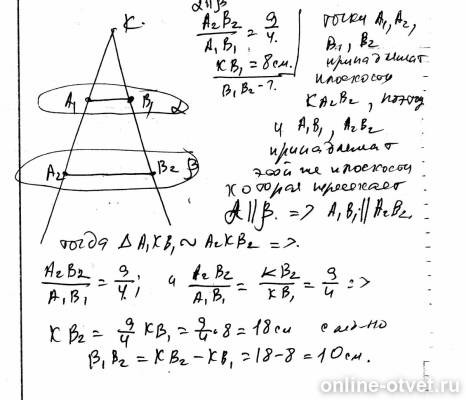 K.
A₁ B₁ α
A₂ B₂ β
α∥β
A₂B₂/A₁B₁ = 9/4.
KB₁ = 8см.
B₁B₂ - ?
точки A₁, A₂,
B₁, B₂
принадлежат
плоскости
KA₂B₂, поэтому
и A₁B₁, A₂B₂
принадлежат
этой же плоскости
которая пересекает
α∥β. => A₁B₁∥A₂B₂
тогда Δ A₁KB₁ ∾ A₂KB₂ =>.
A₂B₂/A₁B₁ = 9/4; и A₂B₂/A₁B₁ = KB₂/KB₁ = 9/4 =>
KB₂ = 9/4 KB₁ = 9/4 · 8 = 18см след-но
B₁B₂ = KB₂ - KB₁ = 18-8 = 10см.
online-otvet.ru